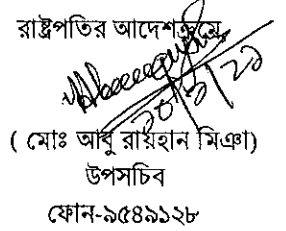 রাষ্ট্রপতির আদেশক্রমে
( মোঃ আবু রায়হান মিঞা)
উপসচিব
ফোন-৯৫৪৯১২৮